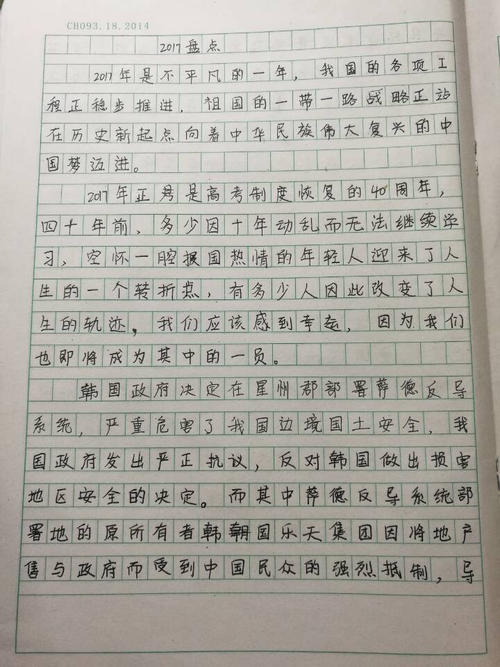 CH093.18.2014
2017盘点
2017年是不平凡的一年，我国的各项工
程正稳步推进，祖国的一带一路战略正站
在历史新起点向着中华民族伟大复兴的中
国梦迈进。
2017年正是高考制度恢复的40周年，
四十年前，多少因十年动乱而无法继续学
习，空怀一腔报国热情的年轻人迎来了人
生的一个转折点，有多少人因此改变了人
生的轨迹。我们应该感到幸运，因为我们
也即将成为其中的一员。
韩国政府决定在星州郡部署萨德反导
系统，严重危害了我国边境国土安全，我
国政府发出严正抗议，反对韩国做出损害
地区安全的决定。而其中萨德反导系统部
署地的原所有者韩国乐天集团因将地产
售与政府而受到中国民众的强烈抵制，导